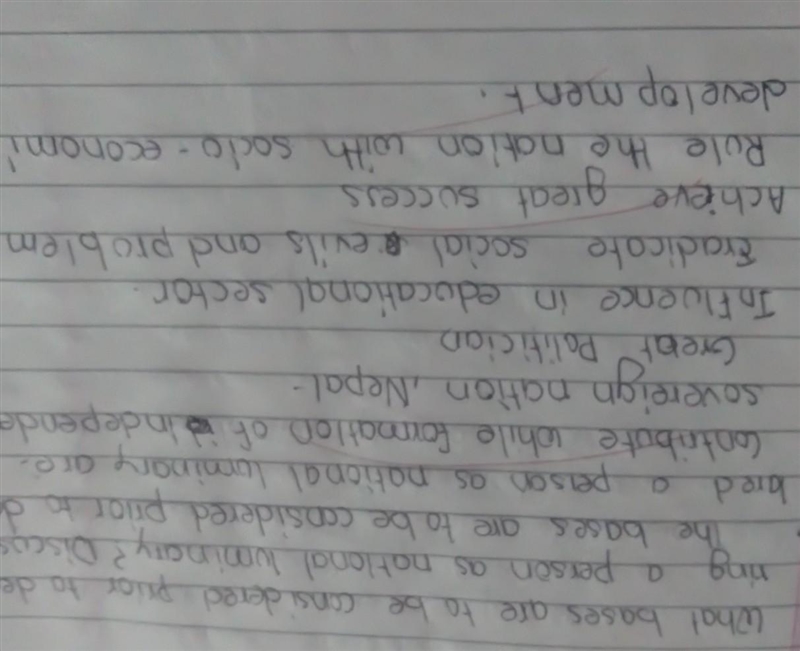 What bases are to be considered prior to de
ring a person as national luminary? Discus
The bases are to be considered prior to d
lared a person as national luminary are-
Contribute while formation of independe
sovereign nation, Nepal-
Great Politician
Influence in educational sector.
Eradicate social evils and problem
Achieve great success
Rule the nation with socio-economi
development.